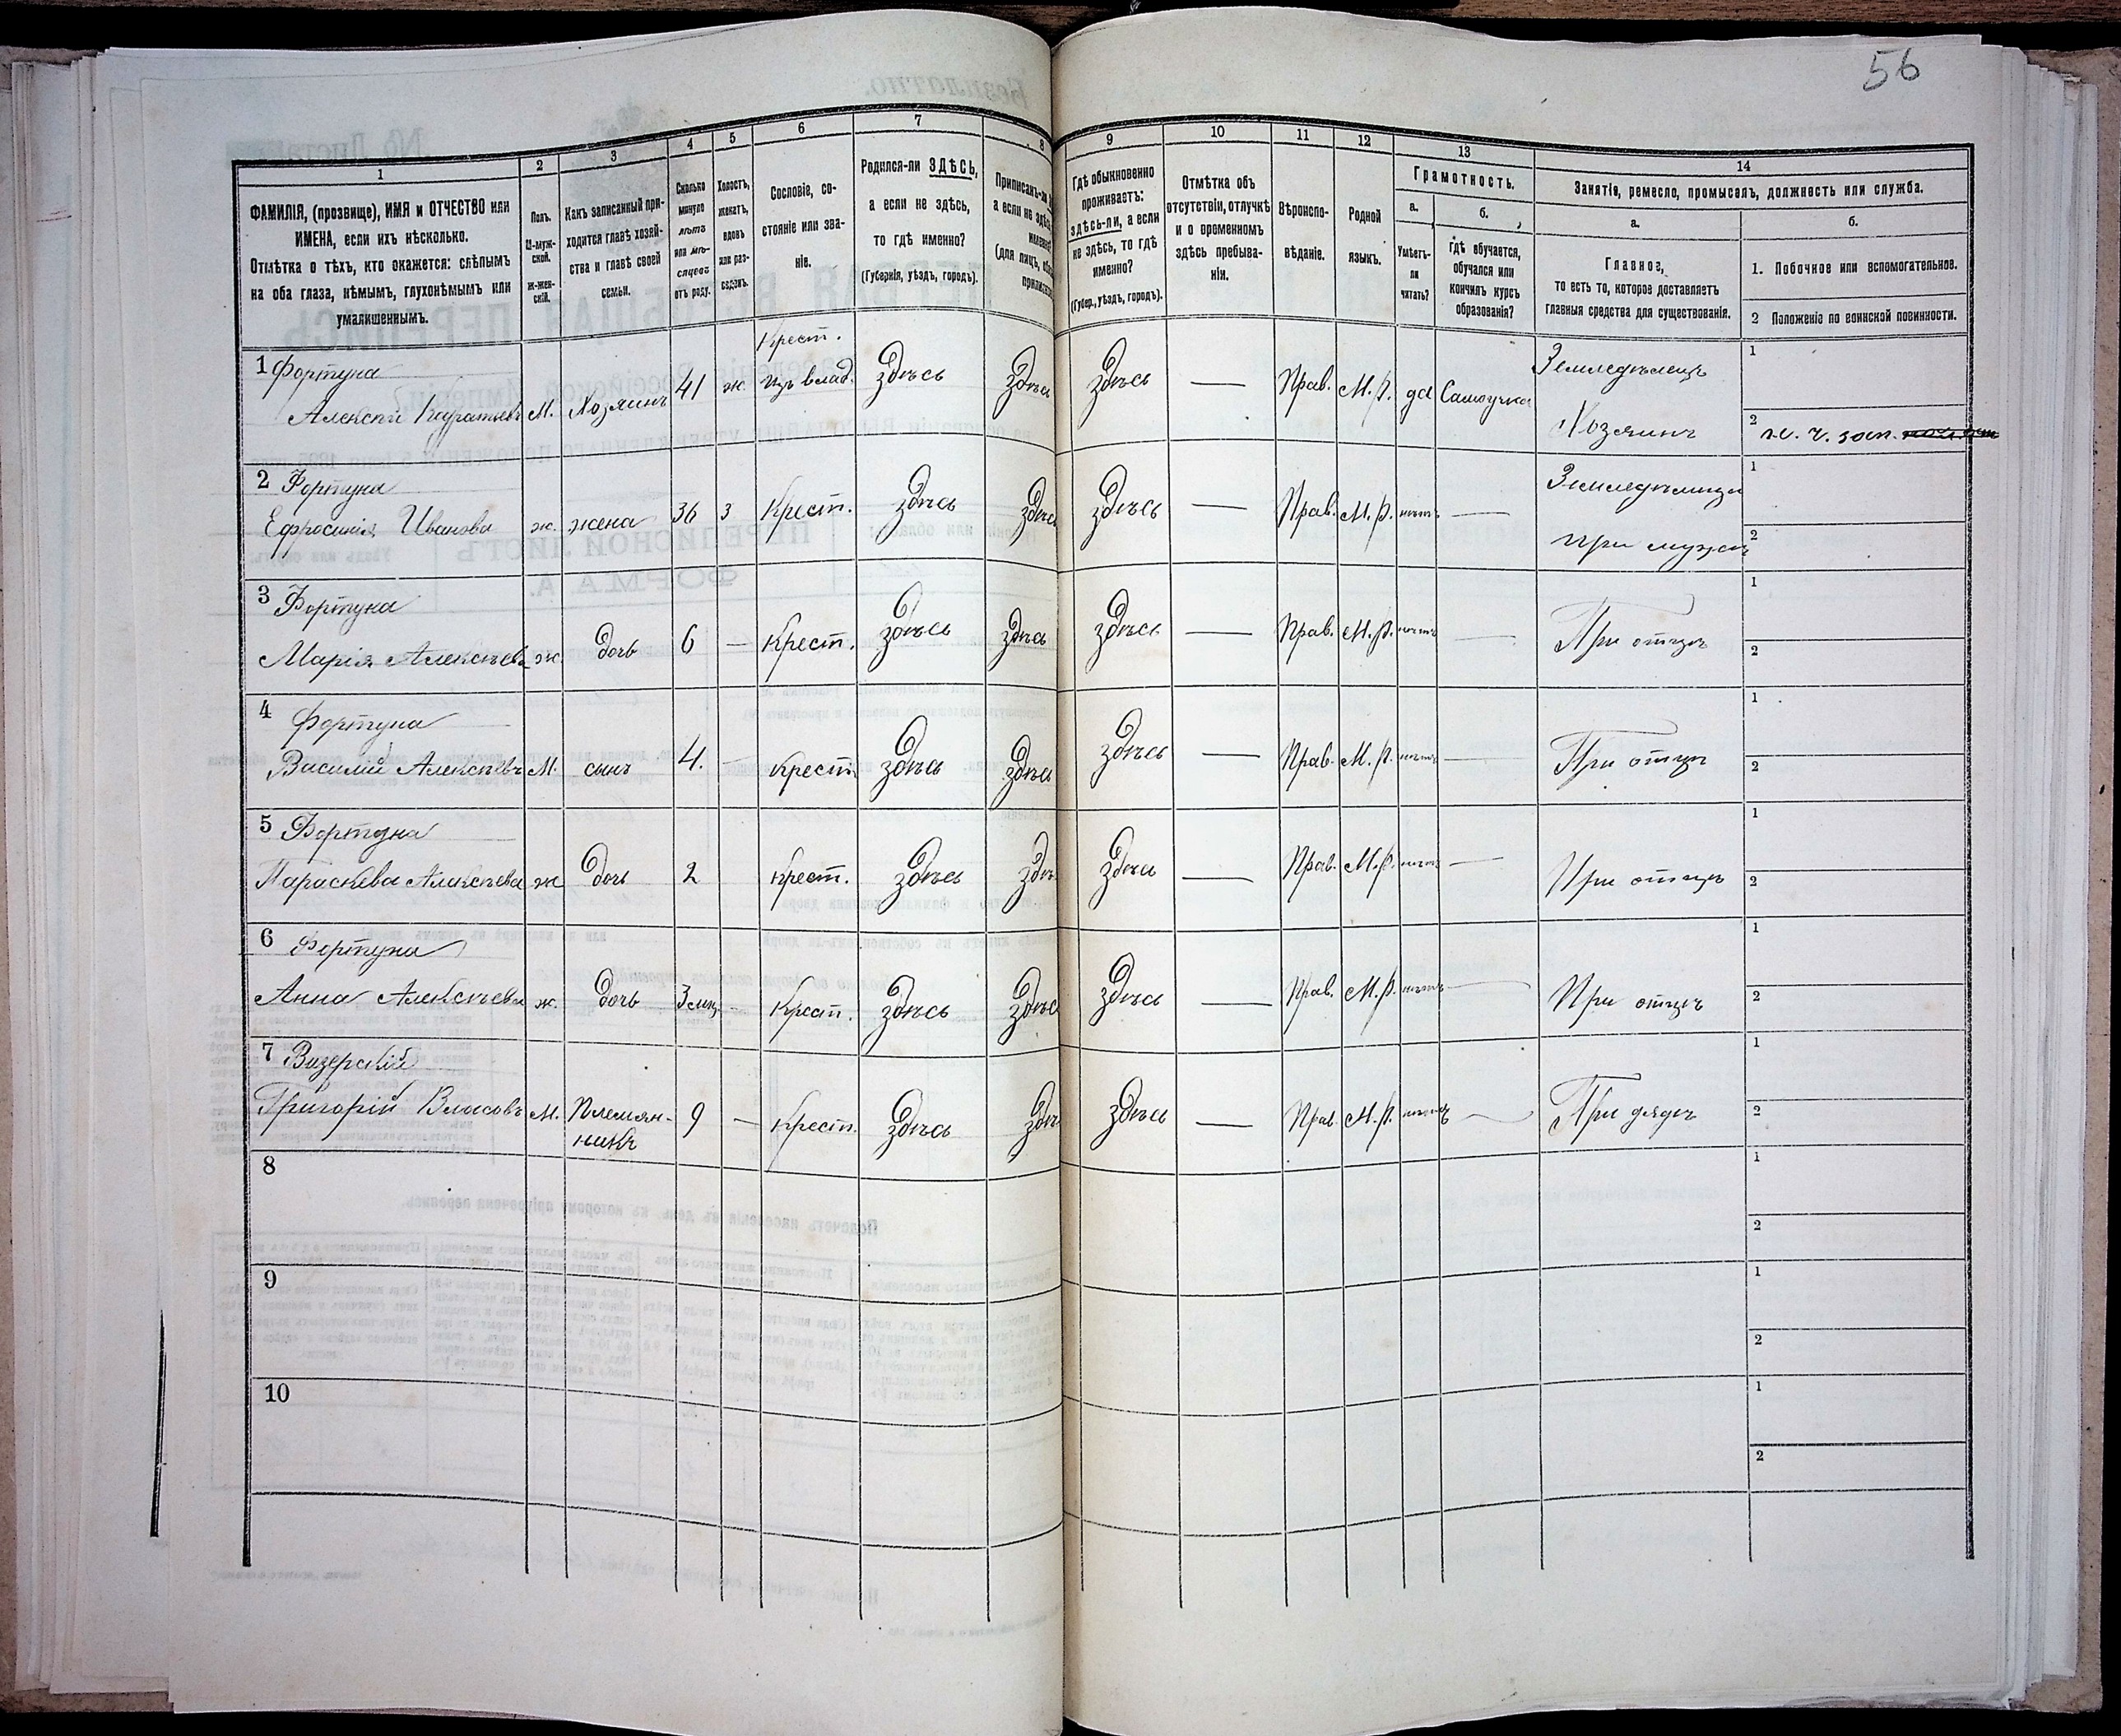 56
1
2
3
4
5
6
7
8
9
10
11
12
13
14
ФАМИЛІЯ, (прозвище), ИМЯ и ОТЧЕСТВО или
ИМЕНА, если ихъ нѣсколько.
Отмѣтка о тѣхъ, кто окажется: слѣпымъ
на оба глаза, нѣмымъ, глухонѣмымъ или
умалишеннымъ.
Полъ.
М-муж-
ской.
ж-жен-
скій.
Какъ записанный при-
ходится главѣ хозяй-
ства и главѣ своей
семьи.
Сколько
минуло
лѣтъ
или мѣ-
сяцевъ
отъ роду.
Холостъ,
женатъ,
вдовъ
или раз-
веденъ.
Сословіе, со-
стояніе или зва-
ніе.
Родился-ли ЗДѢСЬ,
а если не здѣсь,
то гдѣ именно?
(Губернія, уѣздъ, городъ).
Приписанъ-ли
а если не
(для лицъ,
Гдѣ обыкновенно
проживаетъ:
здѣсь-ли, а если
не здѣсь, то гдѣ
именно?
(Губер., уѣздъ, городъ).
Отмѣтка объ
отсутствіи, отлучкѣ
и о временномъ
здѣсь пребыва-
ніи.
Вѣроиспо-
вѣданіе.
Родной
языкъ.
Грамотность.
а.
б.
Умѣетъ-
ли
читать?
Гдѣ обучается,
обучался или
кончилъ курсъ
образованія?
Занятіе, ремесло, промыселъ, должность или служба.
а.
б.
Главное,
то есть то, которое доставляетъ
главныя средства для существованія.
1. Побочное или вспомогательное.
2 Положеніе по воинской повинности.
1 Фортуна
Алексѣй М. Хозяинъ 41 ж. Крест. изъ влад. Здѣсь Здѣсь Здѣсь — Прав. М. р. да Самоучка Земледѣлецъ Хозяинъ 1 2
2 Фортуна
Ефросинія Иванова ж. жена 36 з Крест. Здѣсь Здѣсь Здѣсь — Прав. М. р. нѣтъ — Земледѣлица при мужѣ 1 2
3 Фортуна
Марія Алексѣев ж. дочь 6 — Крест. Здѣсь Здѣсь Здѣсь — Прав. М. р. нѣтъ — При отцѣ 1 2
4 Фортуна
Василій Алексѣевъ М. сынъ 4. — Крест. Здѣсь Здѣсь Здѣсь — Прав. М. р. нѣтъ — При отцѣ 1 2
5 Фортуна
Параскева Алексѣева ж дочь 2 Крест. Здѣсь Здѣсь Здѣсь — Прав. М. р. нѣтъ — При отцѣ 1 2
6 Фортуна
Анна Алексѣева ж. дочь 3 мц. — Крест. Здѣсь Здѣсь Здѣсь — Прав. М. р. нѣтъ — При отцѣ 1 2
7 Визерскій
Григорій Власовъ М. Племян-
никъ 9 — Крест. Здѣсь Здѣсь Здѣсь — Прав. М. р. нѣтъ — При дядѣ 1 2
8 1 2
9 1 2
10 1 2